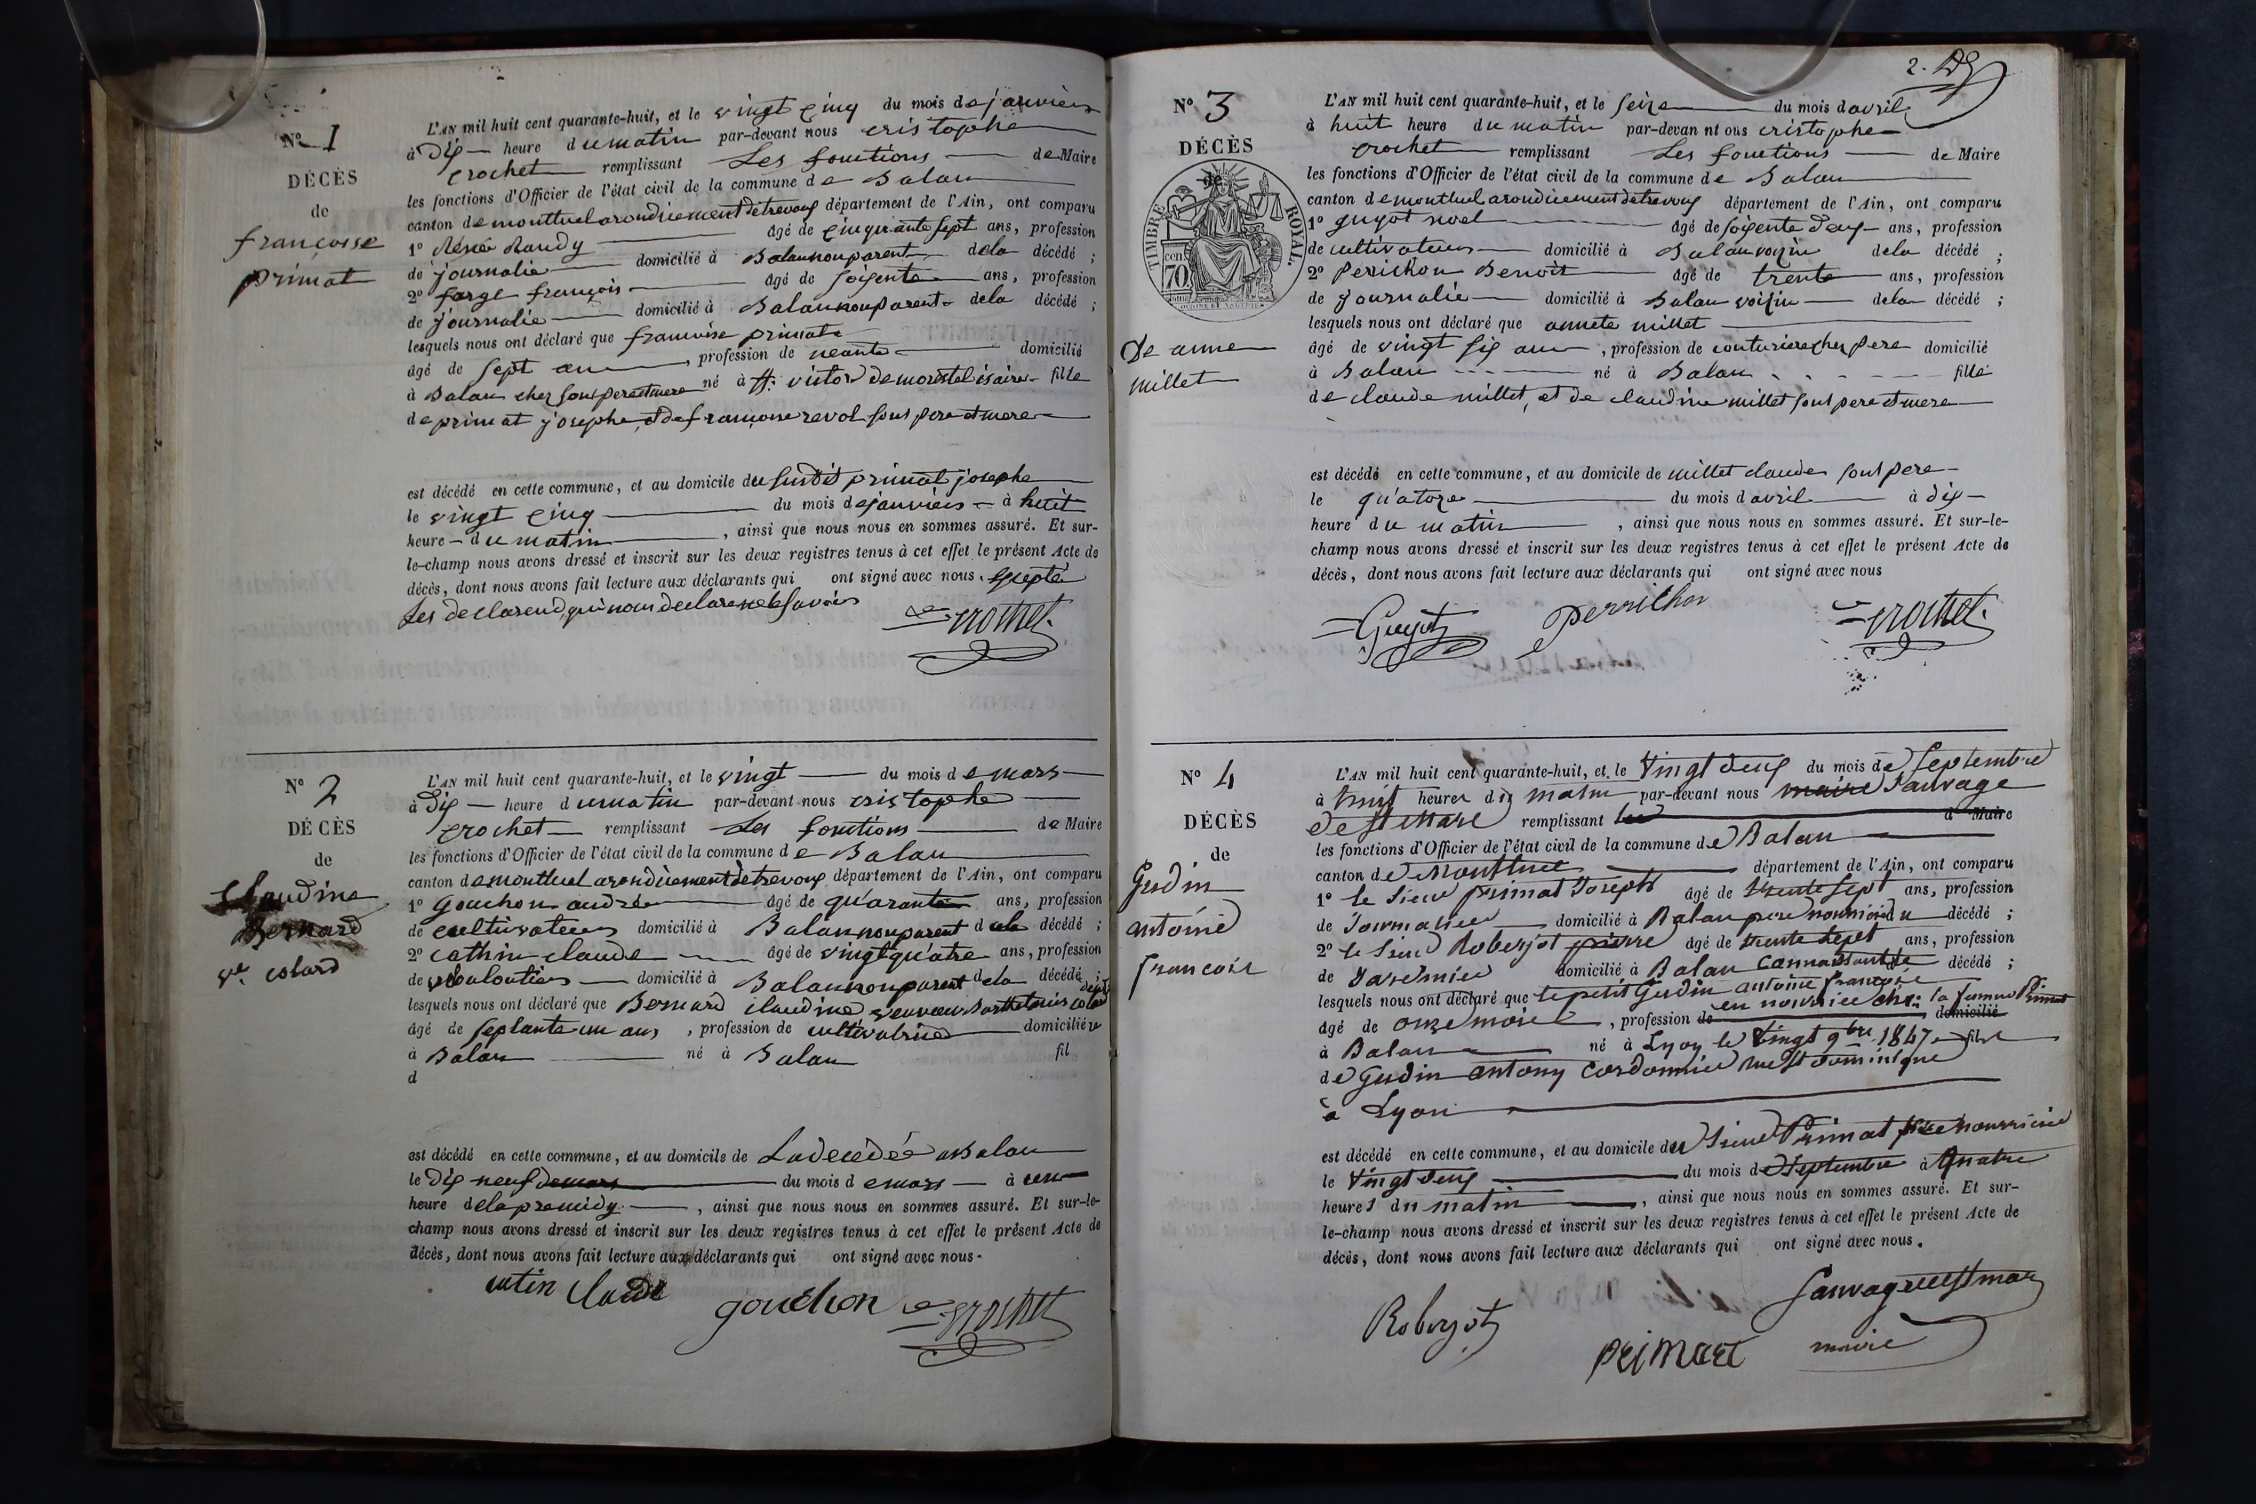 N° 1
DÉCÈS
de
françoise
primat
L'AN mil huit cent quarante-huit, et le vingt cinq du mois de janviers
à Dix heure du matin par-devant nous cristophe
crochet remplissant Les fonctions de Maire
les fonctions d'Officier de l'état civil de la commune de Balan
canton de montluel arondicement de trevoux département de l'Ain, ont comparu
1° Réné Randy âgé de cinquante sept ans, profession
de journalie domicilié à Balan non parent de la décédé ;
2° farge françois âgé de soixente ans, profession
de journalie domicilié à Balan non parent de la décédé ;
lesquels nous ont déclaré que francoise primat
âgé de sept an , profession de neante domicilié
à Balan chez sont pere et mere né à St. victor de morestel isaire fille
de primat josephe et de françoise revol sont pere et mere
est décédé en cette commune, et au domicile du susdit primat josephe
le vingt cinq du mois de janviers à huit
heure du matin , ainsi que nous nous en sommes assuré. Et sur-
le-champ nous avons dressé et inscrit sur les deux registres tenus à cet effet le présent Acte de
décès, dont nous avons fait lecture aux déclarants qui ont signé avec nous. exepté
Les declarend qui nous declare ne le savoir
crochet
N° 2
DÉCÈS
de
Claudine
Bernard
ve. colard
L'AN mil huit cent quarante-huit, et le vingt du mois de mars
à Dix heure du matin par-devant nous cristophe
crochet remplissant Les fonctions de Maire
les fonctions d'Officier de l'état civil de la commune de Balan
canton de montluel arondicement de trevoux département de l'Ain, ont comparu
1° Gouchon andrée âgé de quarante ans, profession
de cultivateur domicilié à Balan non parent de la décédé ;
2° cathin claude âgé de vingt quatre ans, profession
de domicilié à Balan non parent de la décédé ;
lesquels nous ont déclaré que Bernard claudine veuve
âgé de septante un ans , profession de cultivatrice domicilié
à Balan né à Balan fil
d
est décédé en cette commune, et au domicile de La decédée a Balan
le dix neuf de mars du mois de mars à une
heure de la premidy , ainsi que nous nous en sommes assuré. Et sur-le-
champ nous avons dressé et inscrit sur les deux registres tenus à cet effet le présent Acte de
décès, dont nous avons fait lecture aux déclarants qui ont signé avec nous.
catin Claude gouchon crochet
2.
N° 3
DÉCÈS
de
TIMBRE ROYAL.
70 cen
De anne
millet
L'AN mil huit cent quarante-huit, et le seize du mois d avril
à huit heure du matin par-devan nt ous cristophe
crochet remplissant Les fonctions de Maire
les fonctions d'Officier de l'état civil de la commune de Balan
canton de montluel arondicement de trevoux département de l'Ain, ont comparu
1° guyot noel âgé de soixente deux ans, profession
de cultivateur domicilié à Balan voizin de la décédé ;
2° perichon Benoit âgé de trente ans, profession
de journalie domicilié à Balan voisin de la décédé ;
lesquels nous ont déclaré que annete millet
âgé de vingt six an , profession de couturiere chez pere domicilié
à Balan né à Balan fille
de claude millet, et de claudine millet sont pere et mere
est décédé en cette commune, et au domicile de millet claude sont pere
le quatorze du mois d avril à dix
heure du matin , ainsi que nous nous en sommes assuré. Et sur-le-
champ nous avons dressé et inscrit sur les deux registres tenus à cet effet le présent Acte de
décès, dont nous avons fait lecture aux déclarants qui ont signé avec nous
Guyot perrichon crochet
N° 4
DÉCÈS
de
Gudin
antoine
francois
L'AN mil huit cent quarante-huit, et le Vingt deux du mois de Septembre
à huit heures du matin par-devant nous maire Sauvage
de St Marc remplissant les d Maire
les fonctions d'Officier de l'état civil de la commune de Balan
canton de Montluel département de l'Ain, ont comparu
1° le Sieur Primat Joseph âgé de trente sept ans, profession
de Journalier domicilié à Balan père nourricie du décédé ;
2° le Sieur Roberjot pierre âgé de trente sept ans, profession
de domicilié à Balan Connaissant le décédé ;
lesquels nous ont déclaré que le petit Gudin antoine françois
âgé de onze mois , profession de en nourrice chez la femme Primat domicilié
à Balan né à Lyon le Vingt 9bre 1847 fils
de Gudin antony Cordonnier rue St Dominique
à Lyon
est décédé en cette commune, et au domicile du Sieur Primat père nourricié
le Vingt deux du mois de Septembre à Quatre
heures du matin , ainsi que nous nous en sommes assuré. Et sur-
le-champ nous avons dressé et inscrit sur les deux registres tenus à cet effet le présent Acte de
décès, dont nous avons fait lecture aux déclarants qui ont signé avec nous.
Roberjot primat Sauvage de St marc
maire